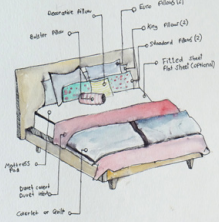 Decorative Pillow
Euro Pillows (2)
Bolster Pillow
King Pillows (2)
Standard Pillows (2)
Fitted Sheet
Flat Sheet (Optional)
Mattress
Pad
Duvet Cover
Duvet Insert
Coverlet or Quilt